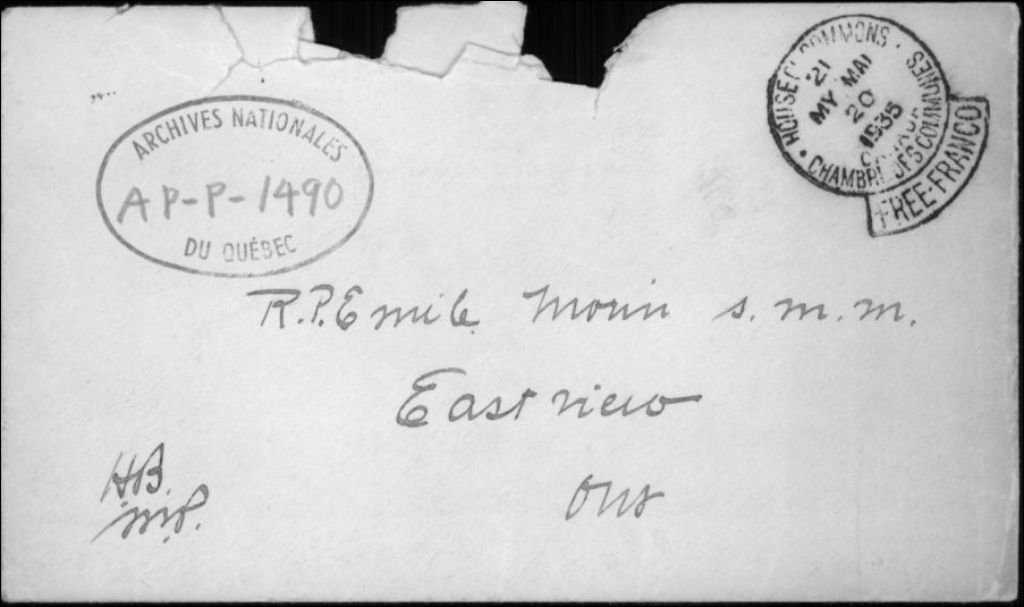 ARCHIVES NATIONALES
AP-P-1490
DU QUÉBEC
HOUSE OF COMMONS
21
MY MAI
20
1935
CANADA
CHAMBRE DES COMMUNES
FREE-FRANCO
R.P. Emile Morin s.m.m.
Eastview
Ont
H.B.
M.P.